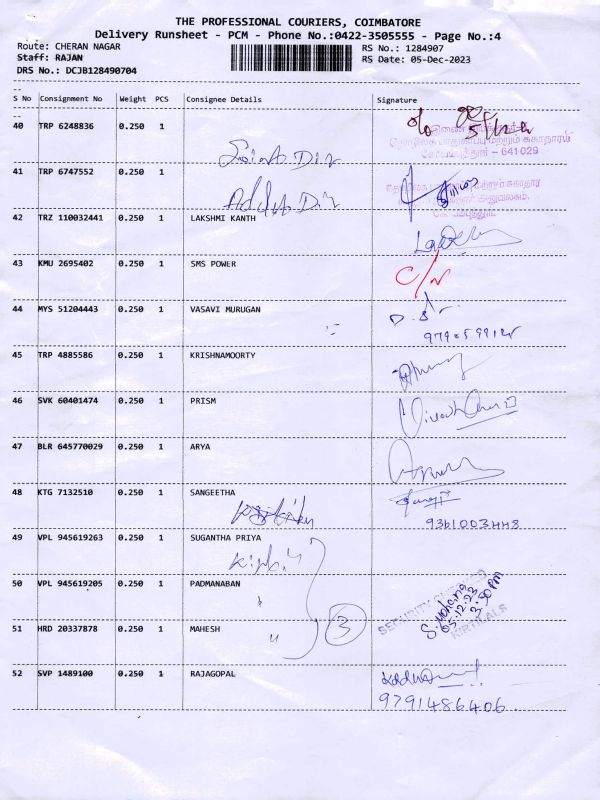 THE PROFESSIONAL COURIERS, COIMBATORE
Delivery Runsheet - PCM - Phone No.:0422-3505555 - Page No.:4
Route: CHERAN NAGAR RS No.: 1284907
Staff: RAJAN RS Date: 05-Dec-2023
DRS No.: DCJB128490704
S No Consignment No Weight PCS Consignee Details Signature
40 TRP 6248836 0.250 1
641 029
41 TRP 6747552 0.250 1
42 TRZ 110032441 0.250 1 LAKSHMI KANTH
43 KMU 2695402 0.250 1 SMS POWER
C/N
44 MYS 51204443 0.250 1 VASAVI MURUGAN
45 TRP 4885586 0.250 1 KRISHNAMOORTY
46 SVK 60401474 0.250 1 PRISM
47 BLR 645770029 0.250 1 ARYA
48 KTG 7132510 0.250 1 SANGEETHA
49 VPL 945619263 0.250 1 SUGANTHA PRIYA
50 VPL 945619205 0.250 1 PADMANABAN
51 HRD 20337878 0.250 1 MAHESH
3
05.12.23
3:50 PM
52 SVP 1489100 0.250 1 RAJAGOPAL
9791486406